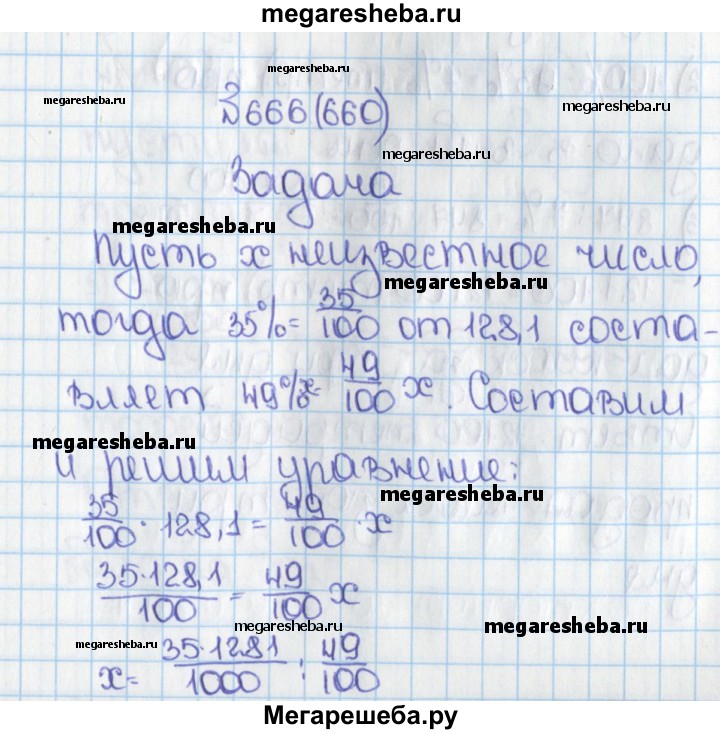 megaresheba.ru
megaresheba.ru
megaresheba.ru
megaresheba.ru
№666(660)
megaresheba.ru
Задача
megaresheba.ru
Пусть x неизвестное число,
megaresheba.ru
тогда 35%= 35/100 от 128,1 соста-
вляет 49%x= 49/100 x. Составим
megaresheba.ru
и решим уравнение:
megaresheba.ru
35/100 · 128,1 = 49/100 · x
35·128,1/100 = 49/100 x
megaresheba.ru
megaresheba.ru
megaresheba.ru
x= 35·1281/1000 : 49/100
Мегарешеба.ру